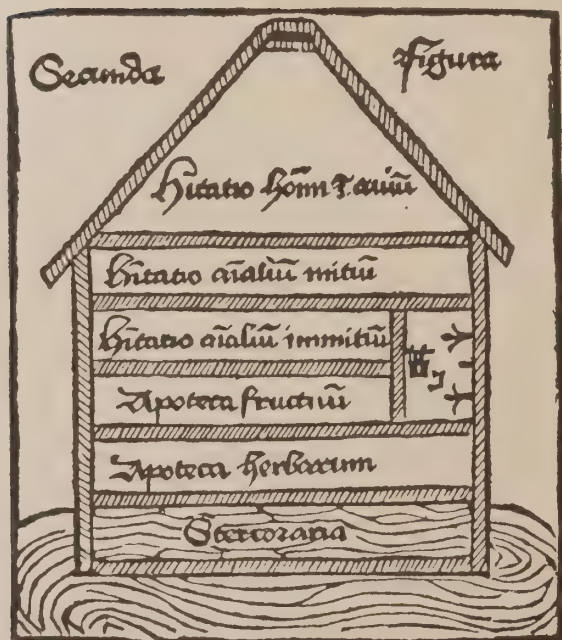 Secunda Figura
Hitatio hoīm ⁊ auiū
Hitatio aīaliū mitiū
Hitatio aīaliū immitiū
Apoteca fructuū
Apoteca herbarum
Stercoraria